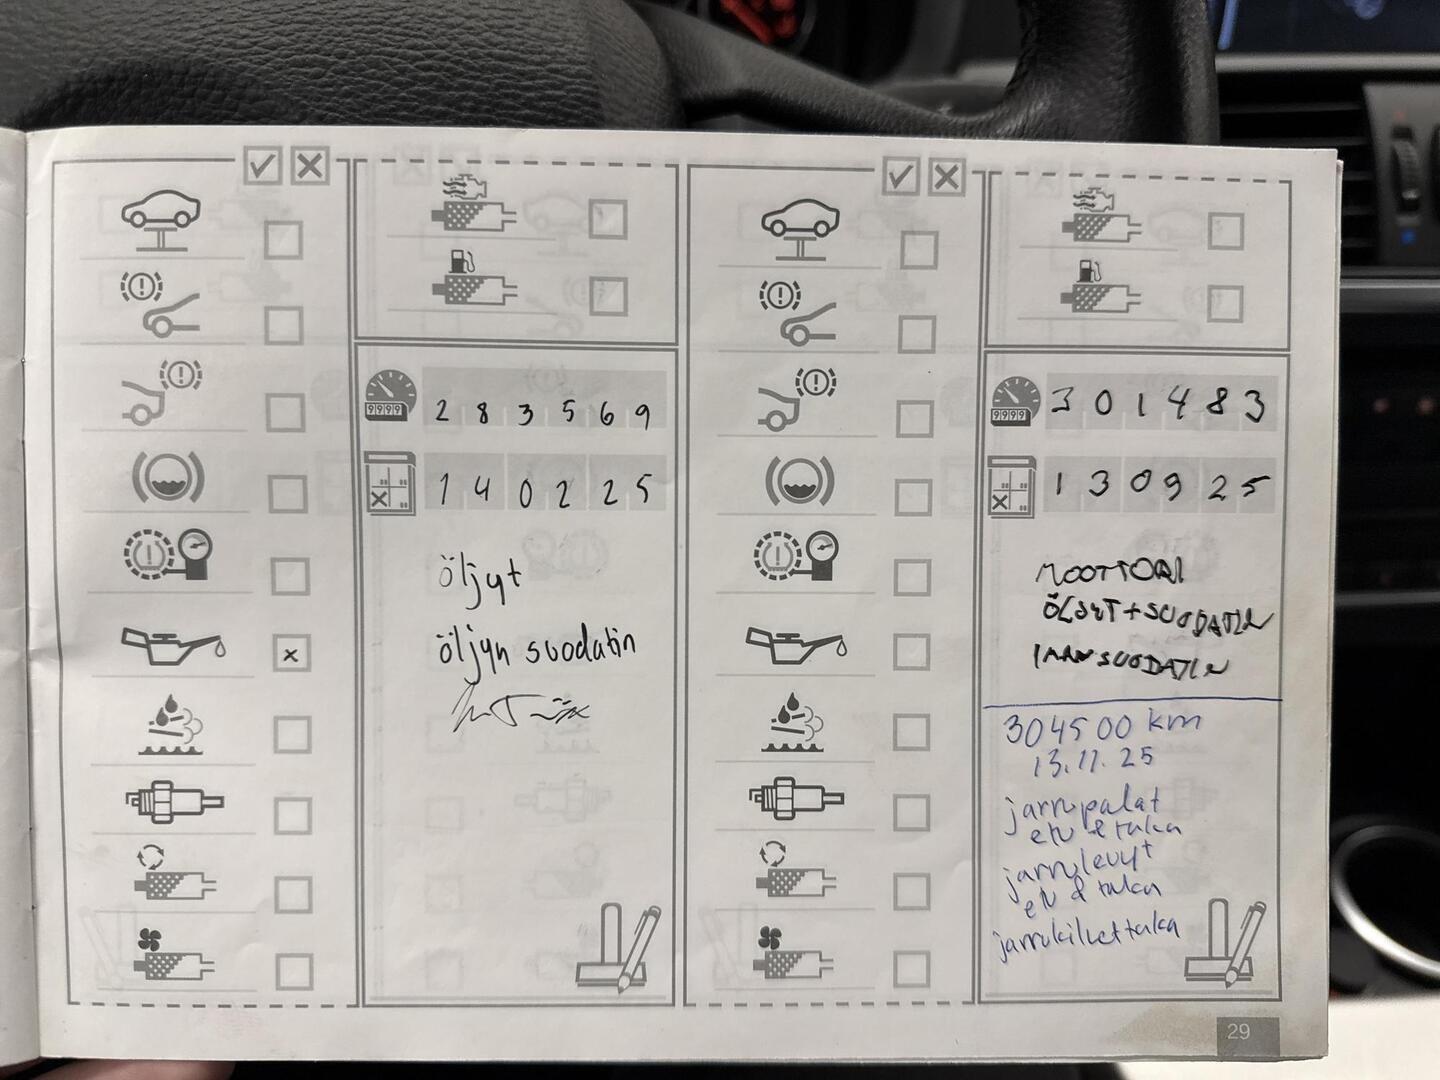 9999
2 8 3 5 6 9
1 4 0 2 2 5
öljyt
öljyn suodatin
x
9999
3 0 1 4 8 3
1 3 0 9 2 5
MOOTTORI
ÖLJYT + SUODATIN
ILMANSUODATIN
304500 km
13.11.25
jarrupalat
etu & taka
jarrulevyt
etu & taka
jarrukilvet taka
29